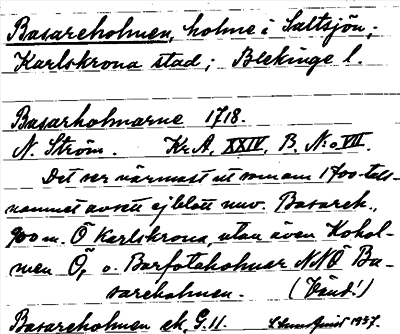 Basareholmen, holme i Saltsjön;
Karlskrona stad; Blekinge l.
Basarholmarne 1718.
N. Ström. Kr.A, XXIV, B. No. VII.
Det ser närmast ut som om 1700-tals-
namnet avsett ej blott nuv. Basareh.,
900 m. Ö Karlskrona, utan även Kohol-
men Ö, o. Barfoteholmar NNÖ Ba-
sareholmen. (Vänd!)
Basareholmen ek. G.11. 1937.